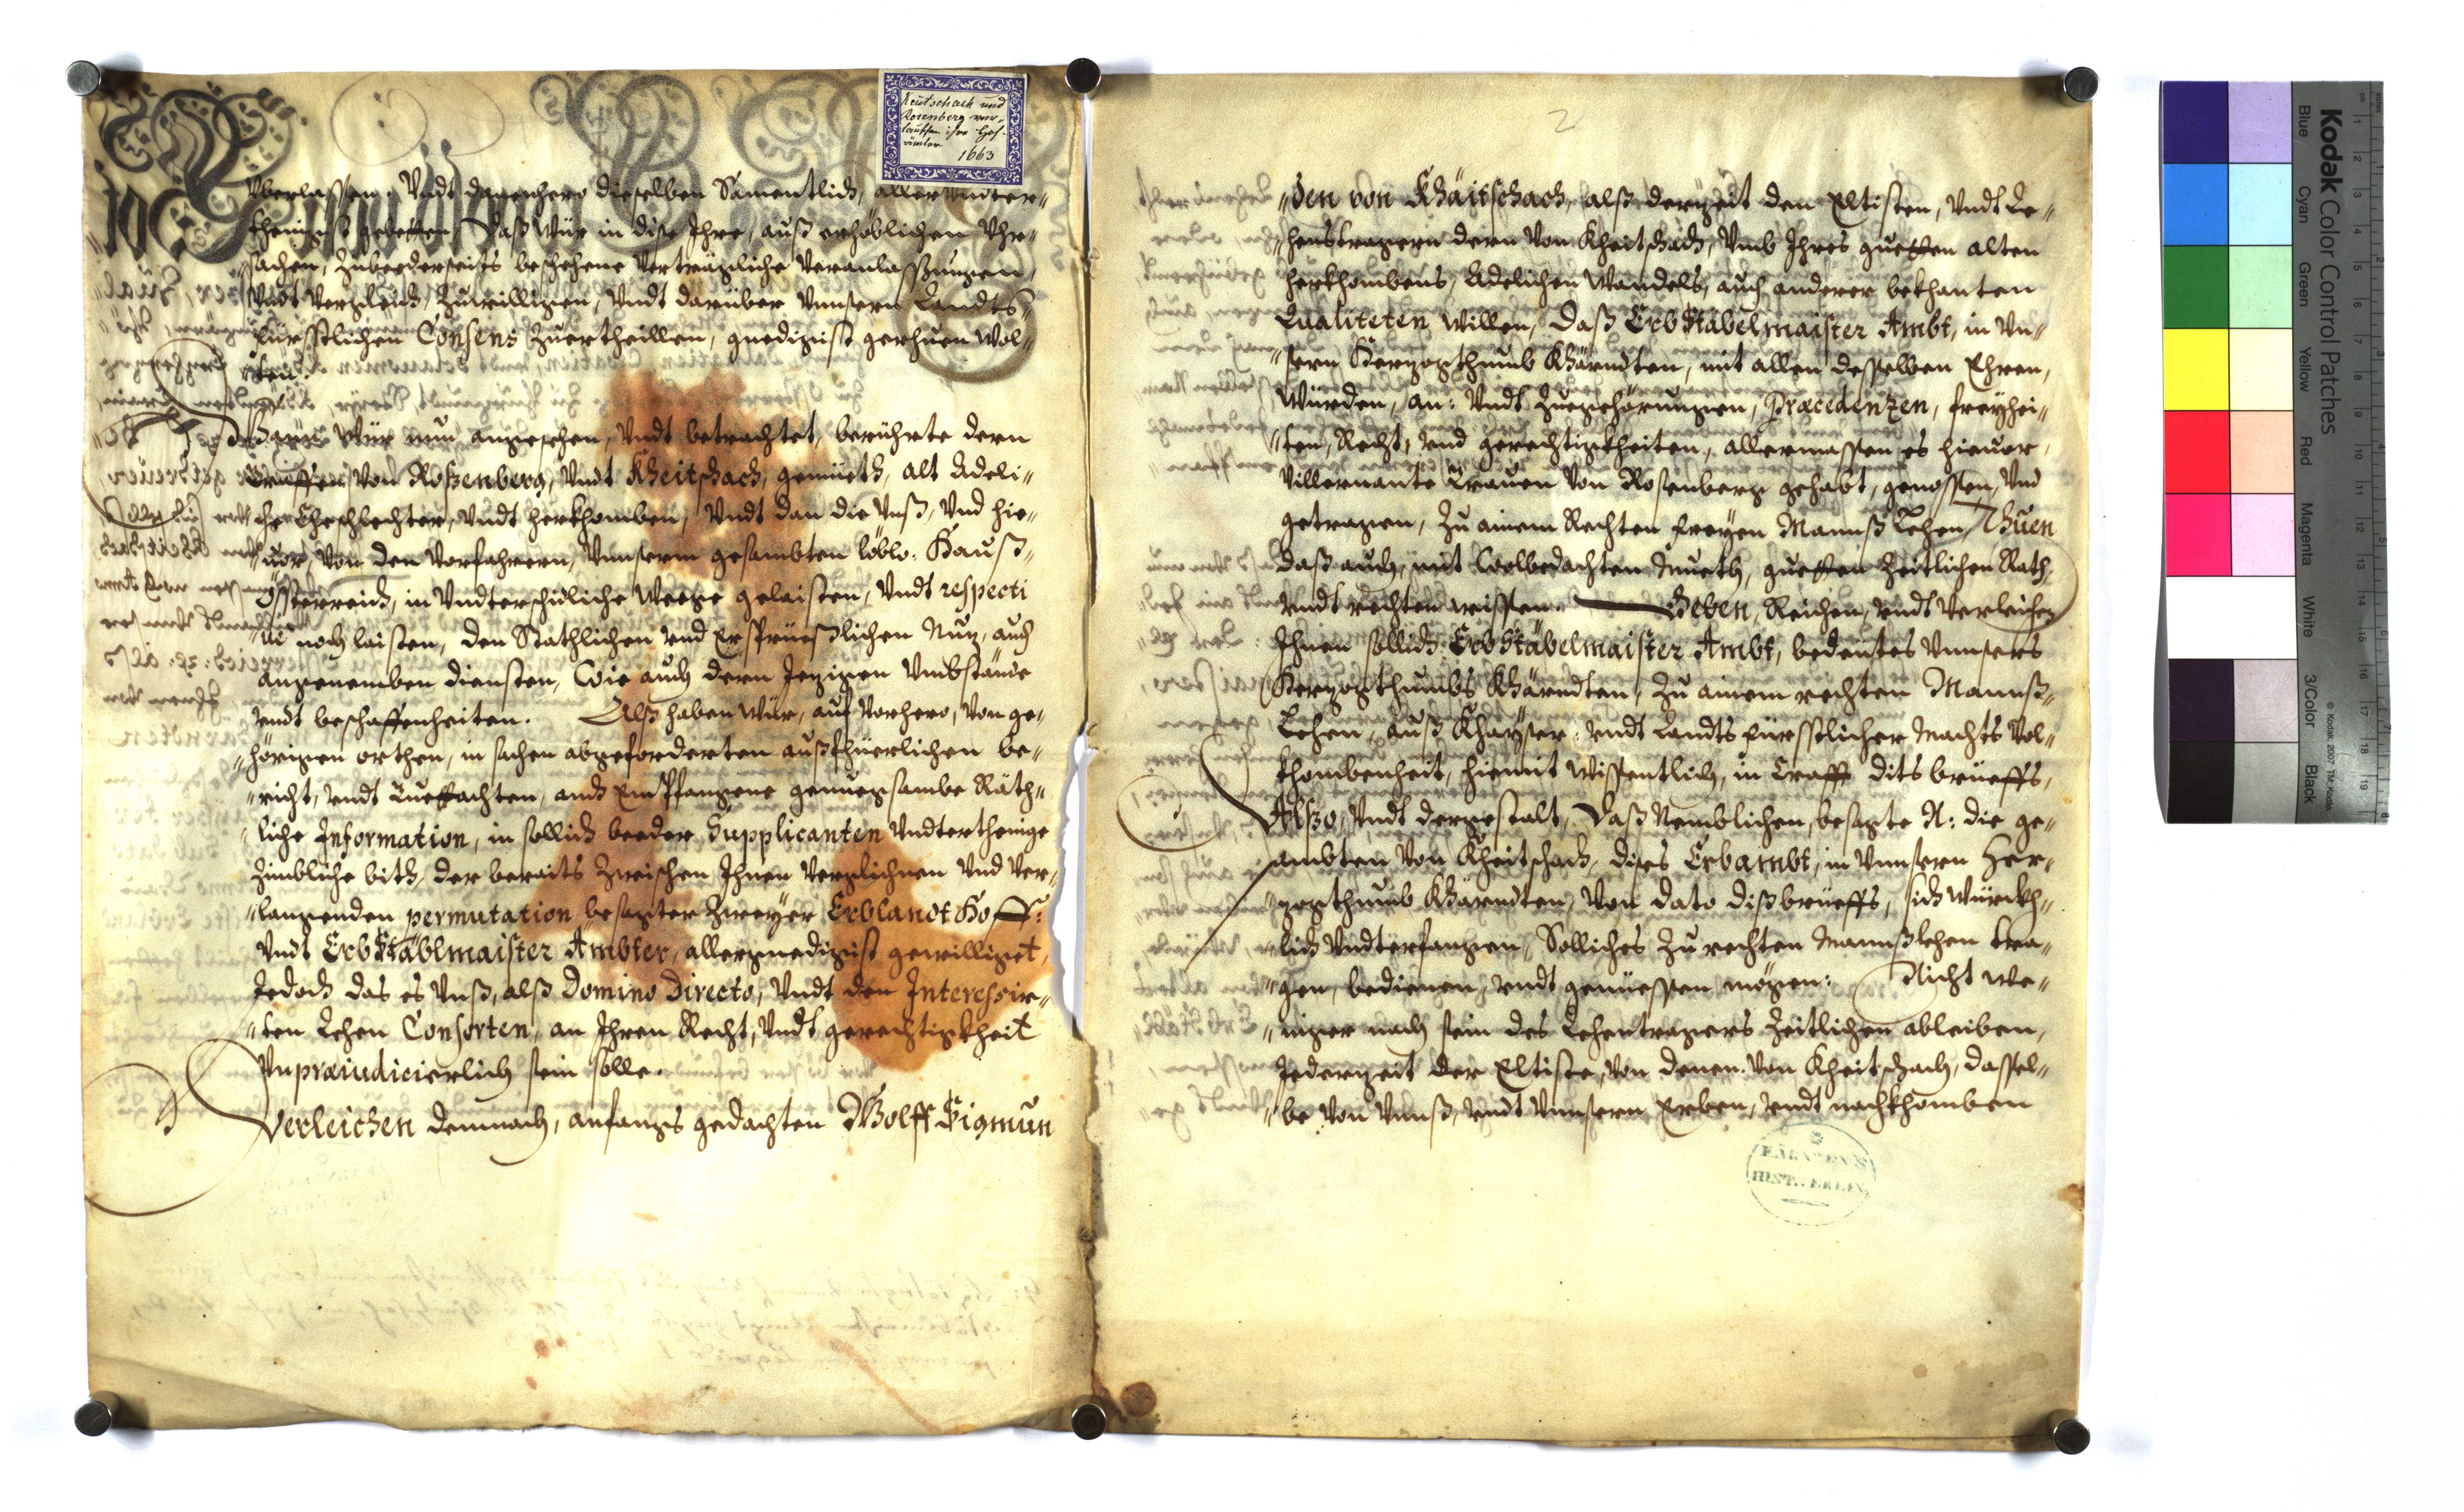 Keutschach und
Rosenberg ver-
tauschen ihre Hof-
ämter
1663
Vberlassen. Vndt dannenhero dieselben Samentlich, aller Vndter„
thenigist gebetten, Daß Wür in dise Ihre, auß erhöblichen Vhr„
sachen, Zubeederseits beschehene Verträgliche Veranlassungen,
Vndt Vergleich, Zuwilligen, Vndt darüber Vnnsern Landts„
fürsstlichen Consens Zuertheillen, gnedigist geruhen Wol„
ten.
Wür nun angesehen, Vndt betrachtet, berührte dern
Von Roßenberg, Vndt Kheitschach, gemüeth, alt Adeli„
che Gheschlechter, Vndt herkhomben, Vndt dan die Vnß, Vnd hie„
uor, Von den Vorfahrern, Vnnserm gesambten löbl: Hauß„
Össterreich, in Vndterschidliche Weege gelaisten, Vndt respecti
ue noch laisten, den Stathlichen vnd Ersprüeßlichen Nuz, auch
angenemben diensten, Wie auch dern Jezigen Vmbstände
vndt beschaffenheiten. Alß haben Wür, auf Vorhero, Von ge„
„hörigen orthen, in sachen abgeforderten außfhüerlichen be„
„richt, vndt Guettachten, auch Empfangene genuegsambe Räth„
„liche Information, in sollich beeder Supplicanten Vndterthenige
Zimbliche bith, der bereits Zwischen Ihnen Verglichnen Vnd Ver„
„langenden permutation besagter Zweyer Erblandt Hoff:
Vndt Erb Stäblmaister Ambter, allergnedigist gewilliget,
Jedoch das es Vnß, alß Domino Directo, Vndt den Interessir„
„ten Lehen Consorten, an Ihren Recht, Vndt gerechtigkheit
Vnpræiudicierlich sein solle.
Verleichen demnach, anfangs gedachten Wolff Sigmun
2
„den von Khäitschach, alß derzeit den Eltisten, Vndt Le„
„henstragern dern Von Kheitschach, Vmb Ihres guetten alten
herkhombens, Adelichen Wandels, auch anderer bekhanten
Qualiteten willen, Daß Erb Stäbelmaister Ambt, in Vn„
„sern Herzogthumb Khärndten, mit allen desselben Ehren,
Würden, an: Vndt Zuegehörungen, Præcedenzen, freyhei„
„ten, Recht, vnd gerechtigkheiten, allermassen es hieuor,
Villernante Grauen Von Rosenberg gehabt, genossen, Vnd
getragen, Zu ainem Rechten freyen Mannß Lehen, Thuen
daß auch, mit Wolbedachten Mueth, guetten Zeitlichen Rath,
Vndt rechten wissen. Geben, Reichen, vndt Verleihen
Ihnen sollich Erb Stäbelmaister Ambt, bedeutes Vnnsers
Herzogthumbs Khärndten, Zu ainem rechten Mannß„
Lehen, auß Khayser: vndt Landts fürsstlicher Machts Vol„
khombenheit, hiemit Wissentlich, in Crafft dits brüeffs,
Alßo, Vndt dergestalt, Daß Nemblichen, besagte N: die ge„
sambten Von Kheitschach, dises Erbambt, in Vnnsern Her„
„zogthumb Khärndten, Von dato diß brüeffs, sich Würckh„
„lich Vndterfangen, Solliches Zu rechten Mannßlehen tra„
„gen, bedienen, vndt genüessen mögen: Nicht we„
„niger nach sein des Lehentragers Zeitlichen ableiben,
Jederzeit der Eltiste, Von denen Von Kheitschach, dassel„
„be Von Vnnß, vndt Vnnsern Erben, vndt nachkhomben
KÄRNTENS
HIST. VEREIN
Kodak Color Control Patches
© Kodak, 2007 TM: Kodak
Blue Cyan Green Yellow Red Magenta White 3/Color Black